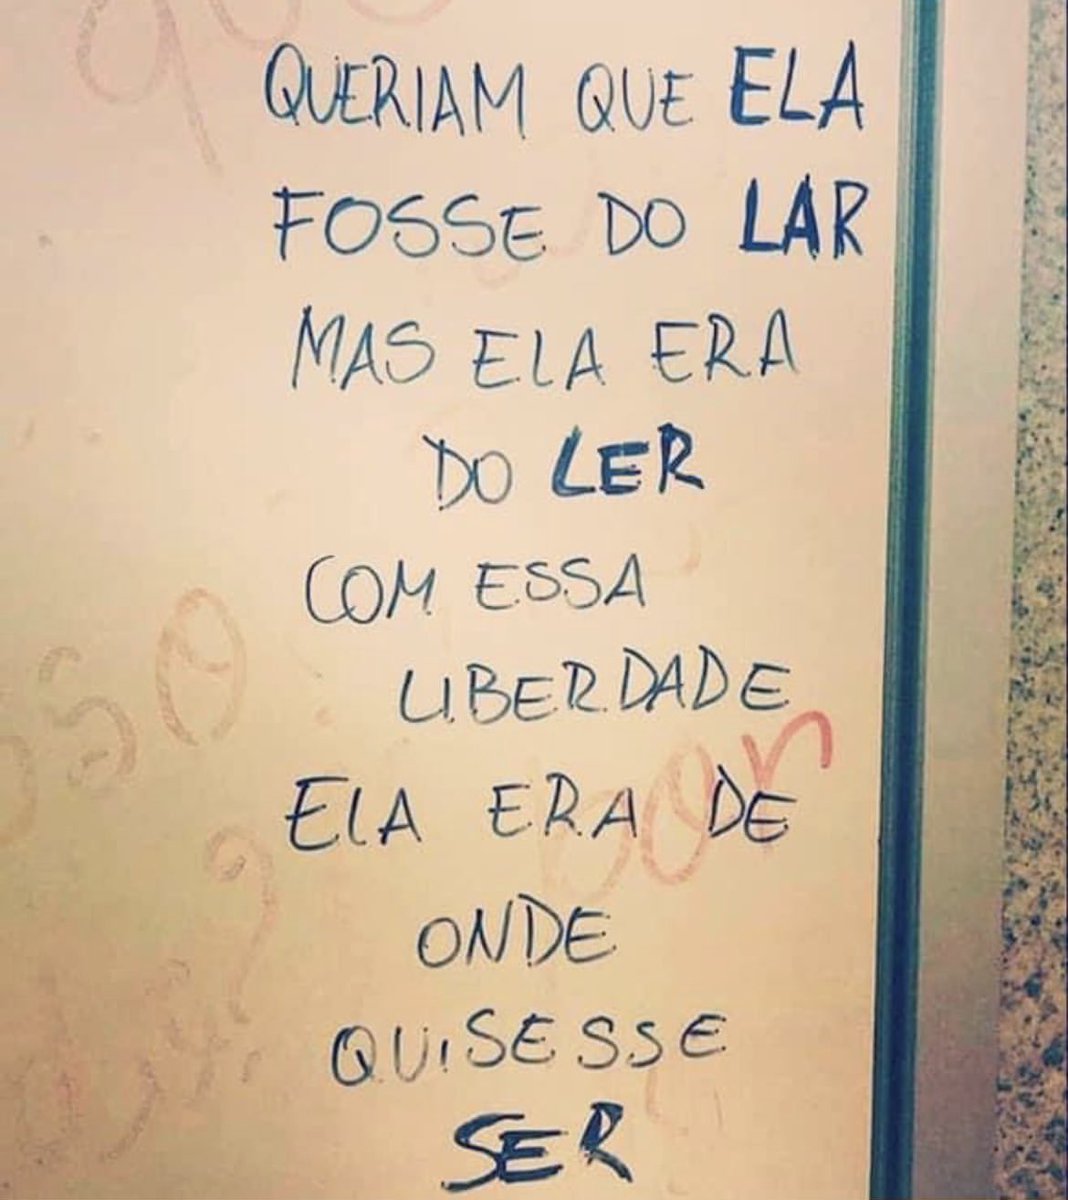 QUERIAM QUE ELA
FOSSE DO LAR
MAS ELA ERA
DO LER
COM ESSA
LIBERDADE
ELA ERA DE
ONDE
QUISESSE
SER